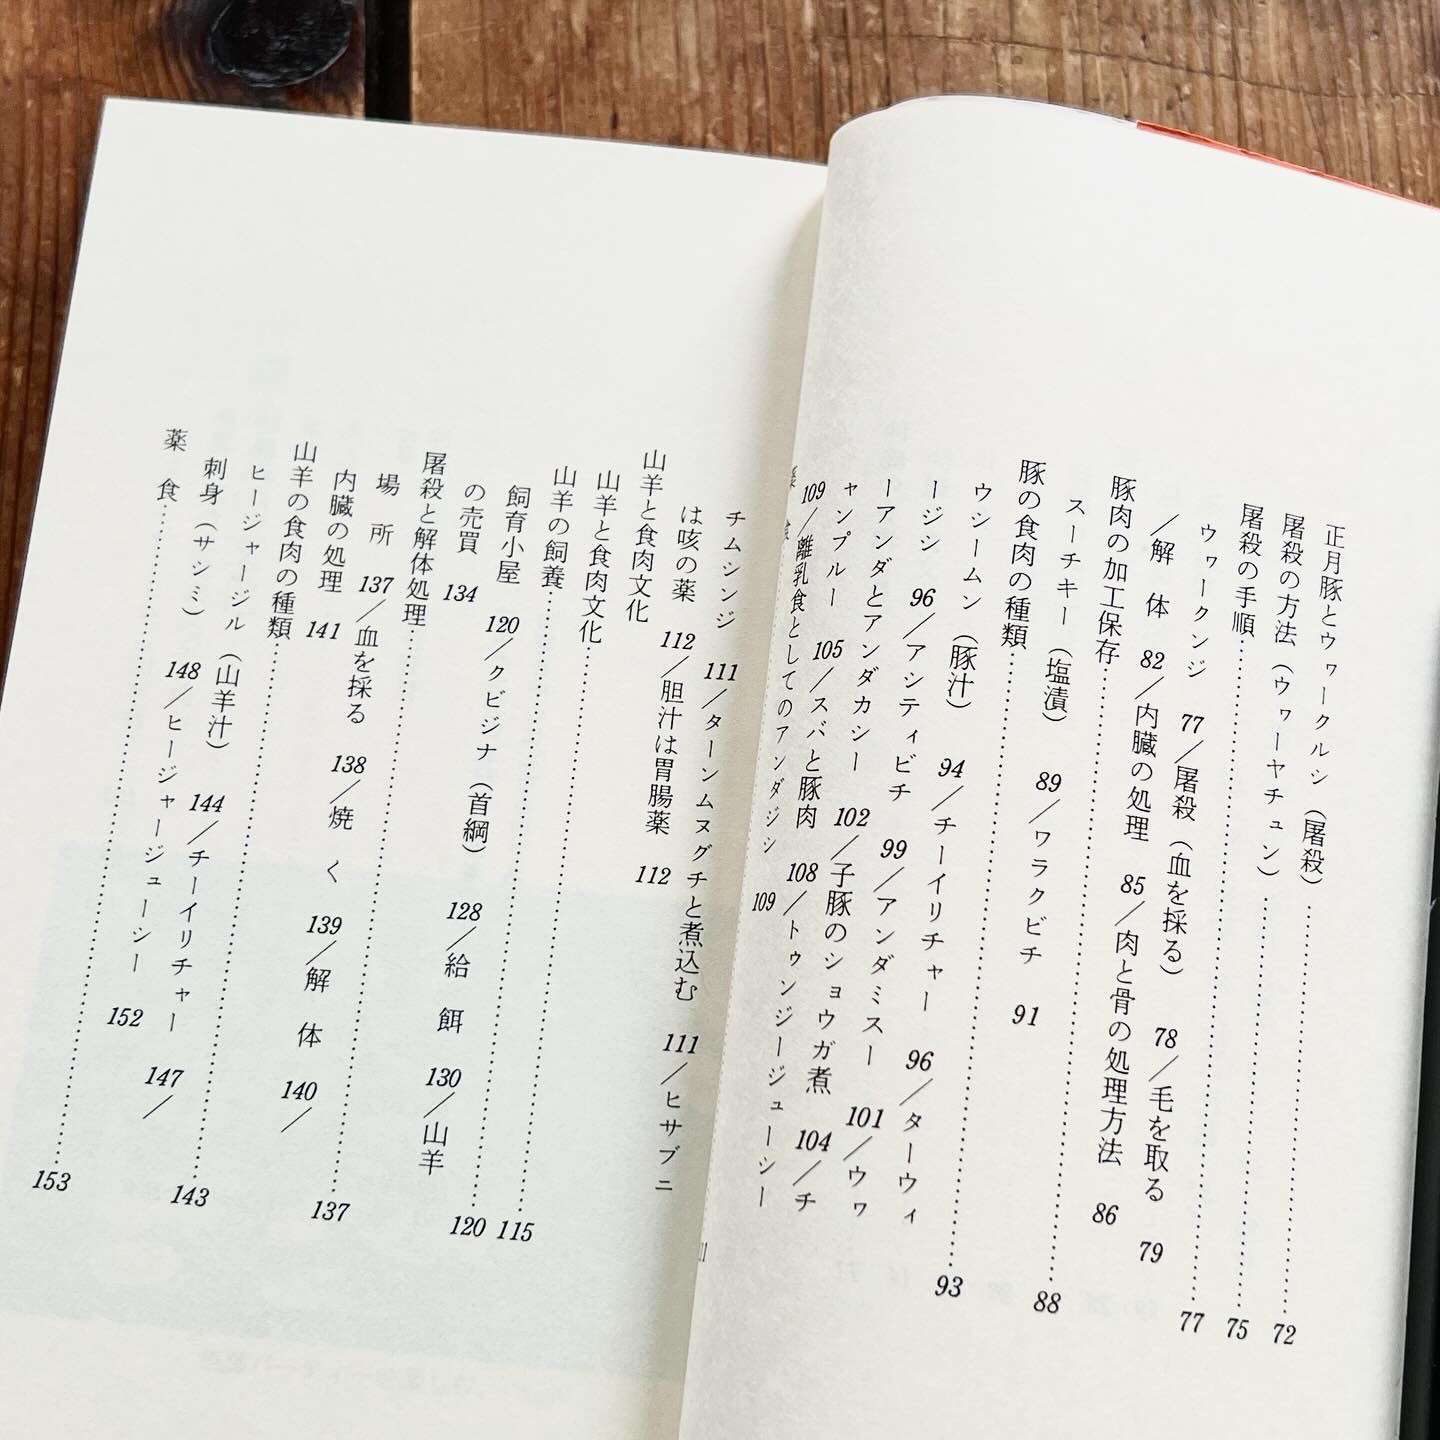 正月豚とウヮークルシ（屠殺）……72
屠殺の方法（ウヮーヤチュン）……75
屠殺の手順……77
ウヮークンジ 77／屠殺（血を採る） 78／毛を取る 79
／解 体 82／内臓の処理 85／肉と骨の処理方法 86
豚肉の加工保存……88
スーチキー（塩漬） 89／ワラクビチ 91
豚の食肉の種類……93
ウシームン（豚汁） 94／チーイリチャー 96／ターウィ
ージシ 96／アシティビチ 99／アンダミスー 101／ウヮ
ーアンダとアンダカシー 102／子豚のショウガ煮 104／チ
ャンプルー 105／スバと豚肉 108／トゥンジージューシー
109／離乳食としてのアンダジシ 109
11
チムシンジ 111／ターンムヌグチと煮込む 111／ヒサブニ
は咳の薬 112／胆汁は胃腸薬 112
山羊と食肉文化
山羊と食肉文化……115
山羊の飼養……120
飼育小屋 120／クビジナ（首綱） 128／給 餌 130／山羊
の売買 134
屠殺と解体処理……137
場 所 137／血を採る 138／焼 く 139／解 体 140／
内臓の処理 141
山羊の食肉の種類……143
ヒージャージル（山羊汁） 144／チーイリチャー 147／
刺身（サシミ） 148／ヒージャージューシー 152
薬 食……153